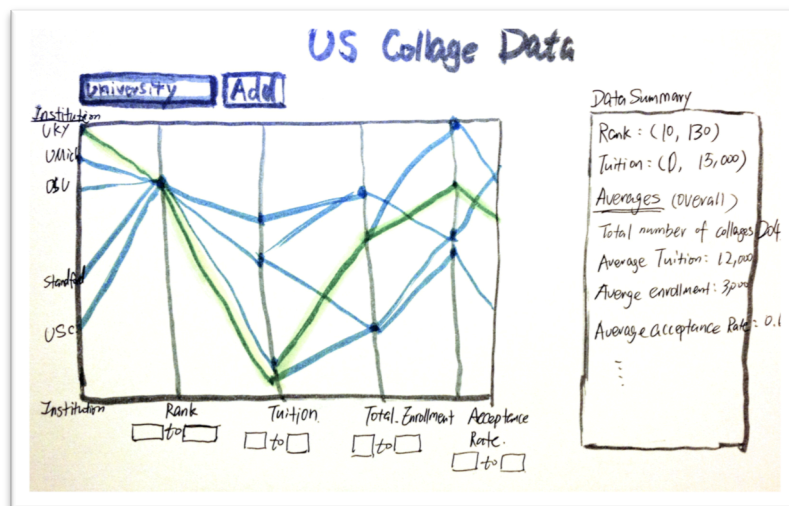 US Collage Data
University Add
Institution
UKY
UMich
OSU
Standford
USC
Institution Rank Tuition Total. Enrollment Acceptance Rate.
to to to to
Data Summary
Rank : (10, 130)
Tuition : (0, 15,000)
Averages (overall)
Total number of collages
Average Tuition : 12,000
Averge enrollment : 3,000
Average acceptance Rate : 0.1